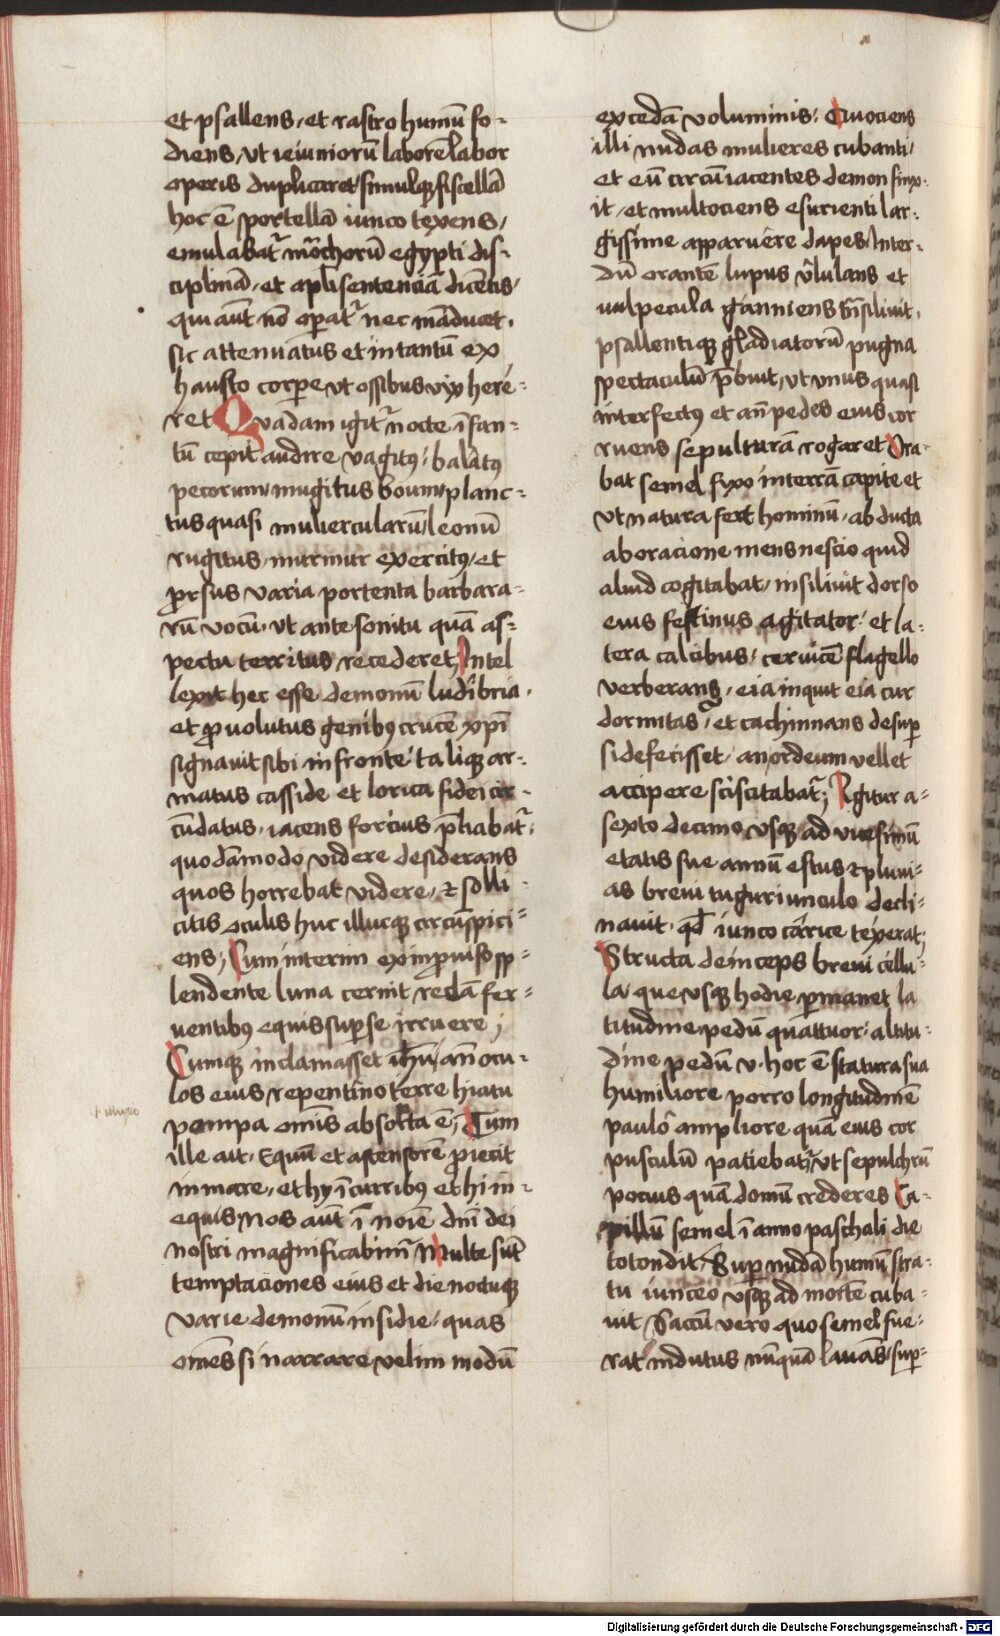 et psallens, et rastro humū fo-
diens, ut ieiuniorū laborē labor
operis duplicaret, simulqȝ fiscellā
hoc ē sportellā iunco texens,
emulabat᷑ mōchorū egypti dis-
ciplinā, et apłi sententiā dicētis,
qui aūt nō opat᷑ nec māducet.
sic attenuatus et in tantū ex
hausto corpore ut ossibus vix here-
ret Quadam igit᷑ nocte īfan-
tū cepit audire vagitus, balatꝰ
pecorum, mugitus boum, planc-
tus quasi muliercularū, leonū
rugitus, murmur exercitꝰ, et
prorsus varia portenta barbara-
rū vocū, ut ante sonitu quā as-
pectu territus recederet, Intel
lexit hec esse demonū ludibria,
et provolutus genibꝰ crucē xp̄i
signavit sibi in fronte, taliqȝ ar-
matus casside et lorica fidei cir-
cūdatus, iacens forcius p̄liabat᷑,
quodāmodo videre desiderans
quos horrebat videre, et solli-
citis oculis huc illucqȝ circūspici-
ens, Cum interim ex improviso sp-
lendente luna cernit redā fer-
ventibꝰ equis super se irruere,
Cumqȝ inclamasset ihm̄, an̄ ocu-
los eius repentino terre hiatu
pompa omīs absorta ē, Tum
ille ait, Equū et ascensorē proiecit
in mare, et hy ī curribꝰ et hi in
equis Nos aūt ī noīe dn̄i dei
nostri magnificabim᷑ Multe sūt
temptaciones eius et die noctuqȝ
varie demonū insidie, quas
omēs si narrare velim modū
excedā voluminis. Quociens
illi nudas mulieres cubanti,
et eū circūiacentes demon finx-
it, et multociens esurienti lar-
gissime apparuere dapes, Inter-
dū orantē lupus ululans et
vulpecula ganniens trāsilivit,
psallentiqȝ gladiatorū pugna
spectaculū p̄buit, ut unus quasi
interfectꝰ et an̄ pedes eius cor
ruens sepulturā rogaret Ora-
bat semel fixo in terrā capite et
ut natura fert hominū, abducta
ab oracione mens nescio quid
aliud cogitabat, insilivit dorso
eius festinus agitator, et la-
tera calcibus, cervicē flagello
verberans, eia inquit eia cur
dormitas, et cachinnans desup
si defecisset, an ordeum vellet
accipere sciscitabat᷑; Igitur a
sexto decimo usqȝ ad vicesimū
etatis sue annū estus et pluvi-
as brevi tuguriunculo decli-
navit, qd iunco carice texerat,
Structa deinceps brevi cellu-
la que usqȝ hodie permanet la
titudine pedū quattuor, altitu-
dine pedū v, hoc ē statura sua
humiliore porro longitudinē
paulo ampliore quā eius cor
pusculū patiebat᷑, ut sepulchrū
pocius quā domū crederes Ca-
pillū semel ī anno paschali die
totondit, Super nudā humū stra-
tu iunceo usqȝ ad mortē cuba-
vit, Saccū vero quo semel fue-
rat indutus nūquā lavās, sup-
Digitalisierung gefördert durch die Deutsche Forschungsgemeinschaft - DFG